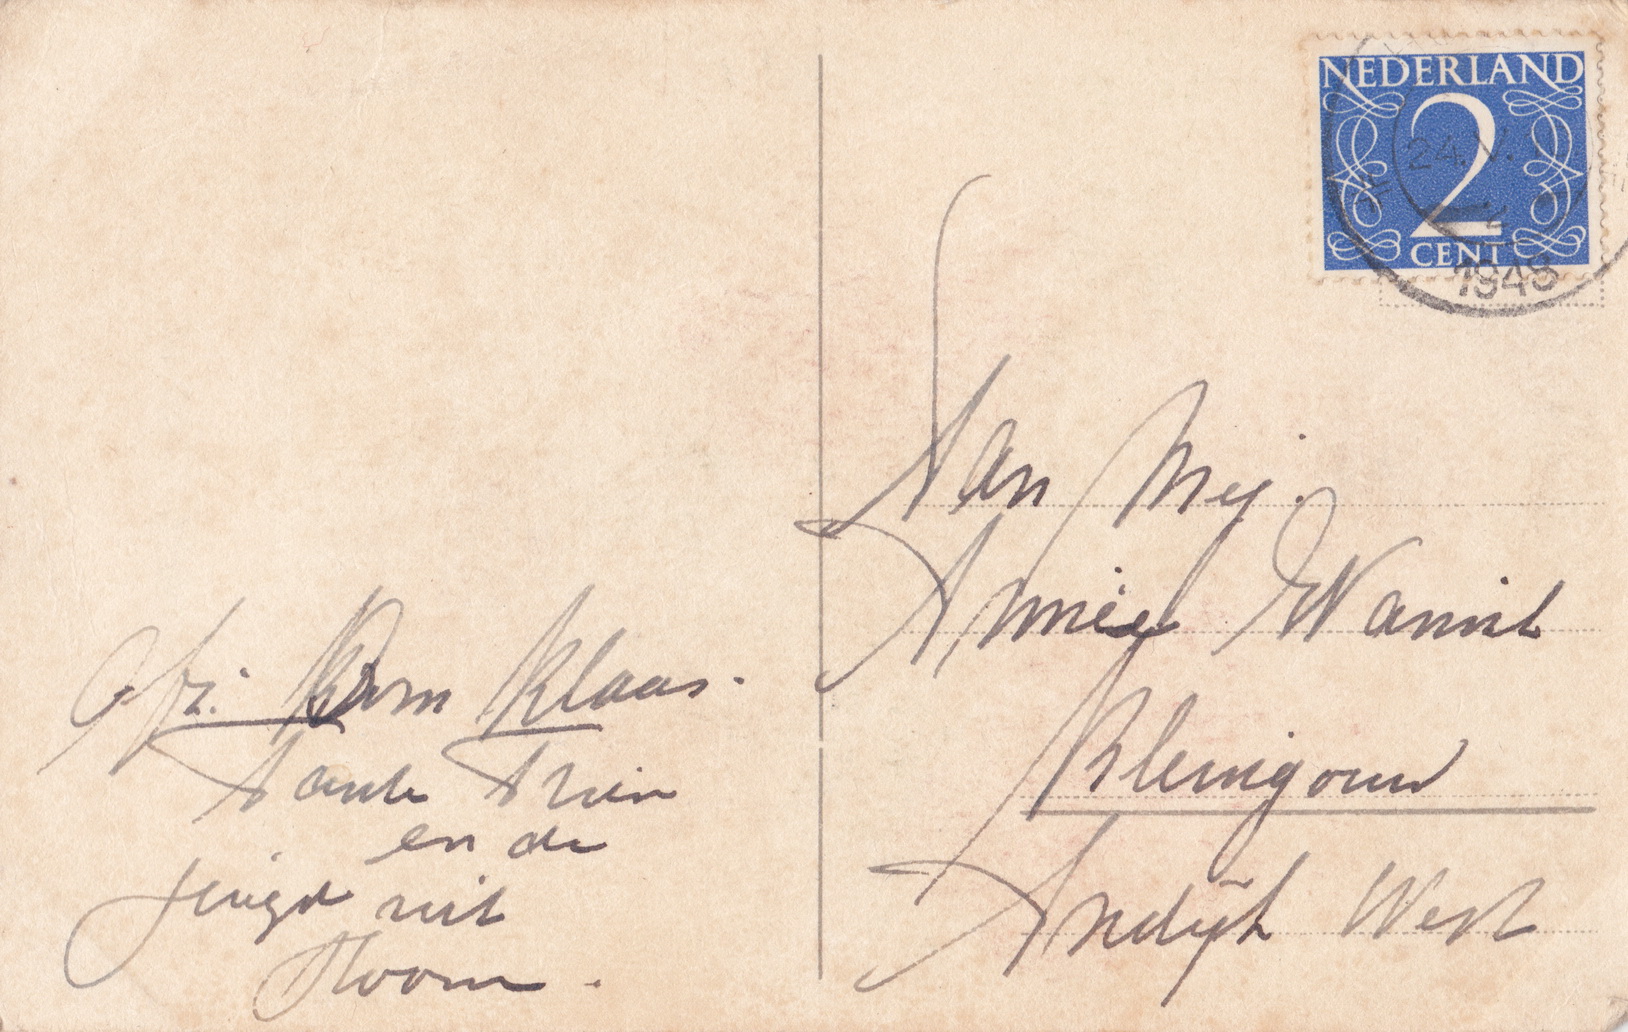 NEDERLAND
2
CENT
24.V.
12
1948
Aan Mej.
Annie Wamit
Kleingouw
Andijk West
Afz. Oom Klaas.
Tante Trien
en de
jeugd uit
Hoorn.